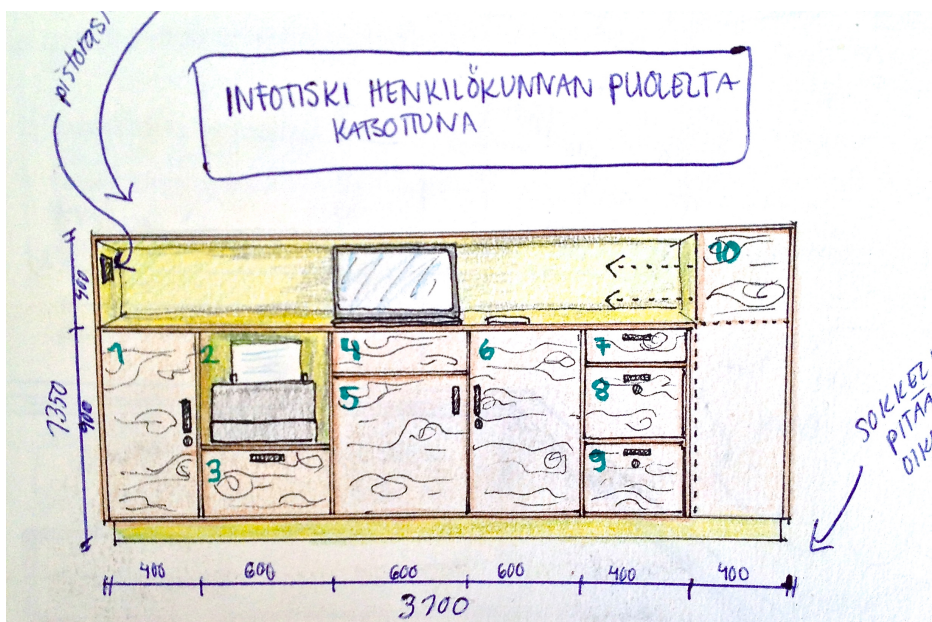 pistorasi
INFOTISKI HENKILÖKUNNAN PUOLELTA
KATSOTTUNA
10
1 2 4 6 7
5 8
3 9
1350
900
SOKKEL
PITÄÄ
OIK
400 600 600 600 400 400
3100